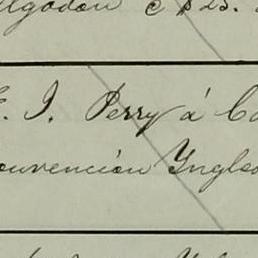 lgodon c $25.
E. I. Perry á Co
ouvención Ynglesa